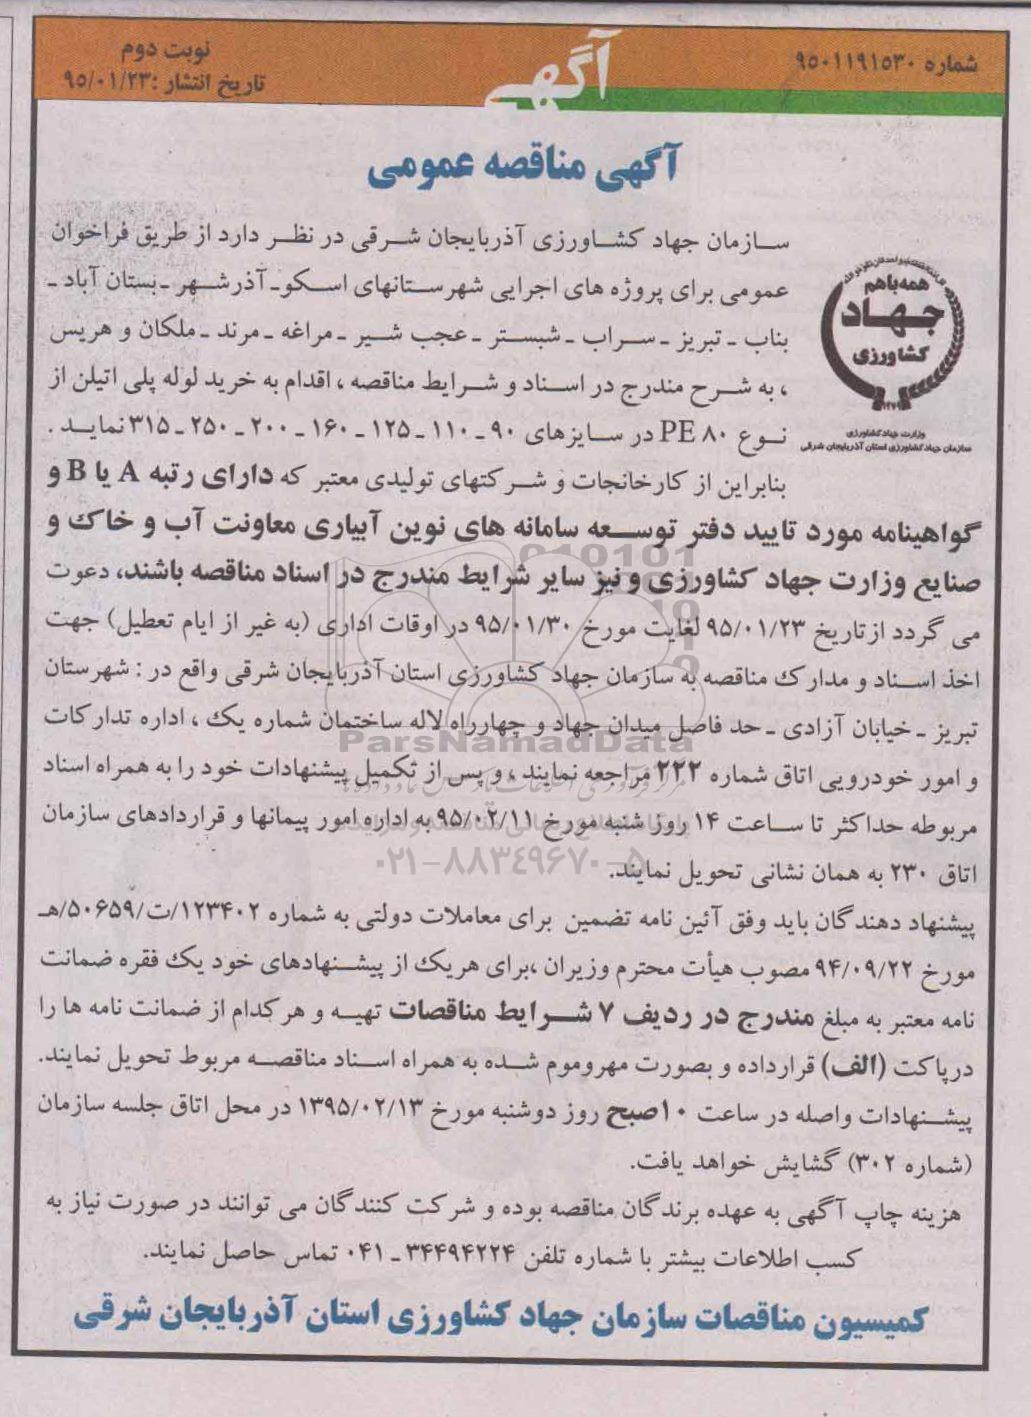 شماره ۹۵۰۱۱۹۱۵۳۰
آگهی
نوبت دوم
تاریخ انتشار :۹۵/۰۱/۲۳
آگهی مناقصه عمومی
همه با هم
جهاد
کشاورزی
وزارت جهاد کشاورزی
سازمان جهاد کشاورزی استان آذربایجان شرقی
سازمان جهاد کشاورزی آذربایجان شرقی در نظر دارد از طریق فراخوان
عمومی برای پروژه های اجرایی شهرستانهای اسکو ـ آذرشهر ـ بستان آباد ـ
بناب ـ تبریز ـ سراب ـ شبستر ـ عجب شیر ـ مراغه ـ مرند ـ ملکان و هریس
، به شرح مندرج در اسناد و شرایط مناقصه ، اقدام به خرید لوله پلی اتیلن از
نوع PE ۸۰ در سایزهای ۹۰ ـ ۱۱۰ ـ ۱۲۵ ـ ۱۶۰ ـ ۲۰۰ ـ ۲۵۰ ـ ۳۱۵ نماید .
بنابراین از کارخانجات و شرکتهای تولیدی معتبر که دارای رتبه A یا B و
گواهینامه مورد تایید دفتر توسعه سامانه های نوین آبیاری معاونت آب و خاک و
صنایع وزارت جهاد کشاورزی و نیز سایر شرایط مندرج در اسناد مناقصه باشند، دعوت
می گردد از تاریخ ۹۵/۰۱/۲۳ لغایت مورخ ۹۵/۰۱/۳۰ در اوقات اداری (به غیر از ایام تعطیل) جهت
اخذ اسناد و مدارک مناقصه به سازمان جهاد کشاورزی استان آذربایجان شرقی واقع در : شهرستان
تبریز ـ خیابان آزادی ـ حد فاصل میدان جهاد و چهارراه لاله ساختمان شماره یک ، اداره تدارکات
و امور خودرویی اتاق شماره ۲۲۲ مراجعه نمایند ، و پس از تکمیل پیشنهادات خود را به همراه اسناد
مربوطه حداکثر تا ساعت ۱۴ روز شنبه مورخ ۹۵/۰۲/۱۱ به اداره امور پیمانها و قراردادهای سازمان
اتاق ۲۳۰ به همان نشانی تحویل نمایند.
پیشنهاد دهندگان باید وفق آئین نامه تضمین برای معاملات دولتی به شماره ۱۲۳۴۰۲/ت/۵۰۶۵۹/هـ
مورخ ۹۴/۰۹/۲۲ مصوب هیأت محترم وزیران ،برای هریک از پیشنهادهای خود یک فقره ضمانت
نامه معتبر به مبلغ مندرج در ردیف ۷ شرایط مناقصات تهیه و هر کدام از ضمانت نامه ها را
درپاکت (الف) قرارداده و بصورت مهروموم شده به همراه اسناد مناقصه مربوط تحویل نمایند.
پیشنهادات واصله در ساعت ۱۰صبح روز دوشنبه مورخ ۱۳۹۵/۰۲/۱۳ در محل اتاق جلسه سازمان
(شماره ۳۰۲) گشایش خواهد یافت.
هزینه چاپ آگهی به عهده برندگان مناقصه بوده و شرکت کنندگان می توانند در صورت نیاز به
کسب اطلاعات بیشتر با شماره تلفن ۳۴۴۹۴۲۲۴ ـ ۰۴۱ تماس حاصل نمایند.
کمیسیون مناقصات سازمان جهاد کشاورزی استان آذربایجان شرقی
ParsNamadData
۰۲۱-۸۸۳۴۹۶۷۰-۵